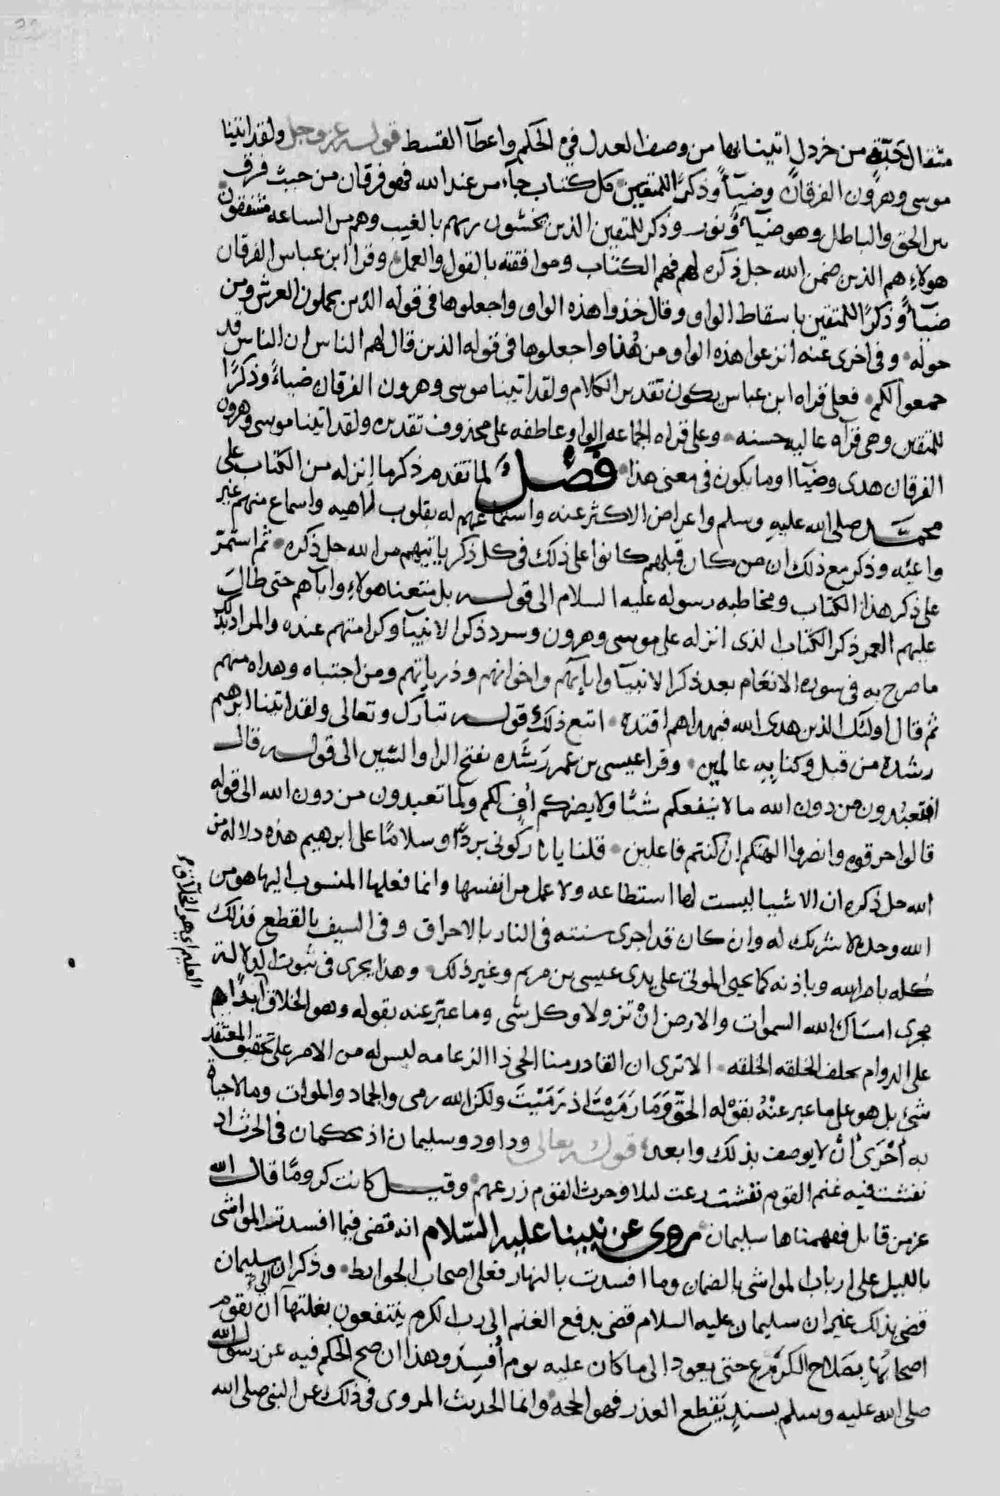 مثقال حبة من خردل اتينا بها من وصف العدل في الحكم واعطآ القسط قوله عز وجل ولقد اتينا
موسى وهرون الفرقان وضيآً وذكرًا للمتقين كل كتاب جآء من عند الله فهو فرقان من حيث فرق
بين الحق والباطل وهو ضيآء ونور وذكر للمتقين الذين يخشون ربهم بالغيب وهم من الساعه مشفقون
هولاء هم الذين ضمن الله جل ذكره لهم فهم الكتاب وموافقته بالقول والعمل وقرا ابن عباس الفرقان
ضيآءً وذكرًا للمتقين باسقاط الواو وقال خذوا هذه الواو واجعلوها في قوله الذين يحملون العرش ومن
حوله وفي اخرى عنه انزعوا هذه الواو من هنا واجعلوها في قوله الذين قال لهم الناس ان الناس قد
جمعوا لكم فعلى قراه ابن عباس يكون تقدير الكلام ولقد اتينا موسى وهرون الفرقان ضياءً وذكرًا
للمتقين وهي قرآه عاليه حسنه وعلى قراه الجماعه الواو عاطفه على محذوف تقديره ولقد اتينا موسى وهرون
الفرقان هدى وضيآا وما يكون في معنى هذا فصل لما تقدم ذكر ما انزله من الكتاب على
محمد صلى الله عليه وسلم واعراض الاكثر عنه واستماعهم له بقلوب لاهيه واسماع منهم غير
واعيه وذكر مع ذلك ان من كان قبلهم كانوا على ذلك في كل ذكر ياتيهم من الله جل ذكره ثم استمر
على ذكر هذا الكتاب ومخاطبه رسوله عليه السلام الى قوله بل متعنا هولاء واباهم حتى طال
عليهم العمر ذكر الكتاب الذى انزله على موسى وهرون وسرد ذكر الانبيآ وكرامتهم عنده والمراد بذلك
ما صرح به في سوره الانعام بعد ذكر الانبيآ وابآئهم واخوانهم وذرياتهم ومن اجتباه وهداه منهم
ثم قال اولئك الذين هدى الله فبهداهم اقتده اتبع ذلك قوله تبارك وتعالى ولقد اتينا ابرهيم
رشده من قبل وكنا به عالمين وقرا عيسى بن عمر رَشَده بفتح الرا والشين الى قوله قال
افتعبدون من دون الله ما لا ينفعكم شيًا ولا يضركم اف لكم ولما تعبدون من دون الله الى قوله
قالوا حرقوه وانصروا الهتكم ان كنتم فاعلين قلنا يا نار كونى بردًا وسلامًا على ابرهيم هذه دلاله من
الله جل ذكره ان الاشيا ليست لها استطاعه ولا عمل من انفسها وانما فعلها المنسوب اليها هو من
الله وحده لا شريك له وان كان قد اجرى سنته في النار بالاحراق وفي السيف بالقطع فذلك
كله بامر الله وباذنه كما يحيى الموتى على يدى عيسى بن مريم وغير ذلك وهذا يجرى في ثبوت الدلالة
مجرى امساك الله السموات والارض ان تزولا وكل شى وما عبر عنه بقوله وهو الخلاق
على الدوام يخلف الخلقه الخلقه الا ترى ان القادر منا الحي ذا الزعامه ليس له من الامر على تحقيق المعتقد
شئ بل هو على ما عبر عنه بقوله الحق وَمَا رَمَيْتَ اذ رَمَيْتَ ولكن الله رمى والجماد والموات وما لا حياه
به أحْرَى أنْ لا يوصف بذلك وابعد قوله تعالى وداود وسليمان اذ يحكمان في الحرث اذ
نفشت فيه غنم القوم نفشت رعت ليلا وحرث القوم زرعهم وقيل كانت كرومًا قال الله
عز من قايل ففهمناها سليمان مروى عن نبينا عليه السلام انه قضى فيما افسدت المواشى
بالليل على ارباب المواشى بالضمان وما افسدت بالنهار فعلى اصحاب الحوايط وذكر ان سليمان
قضى بذلك غير ان سليمان عليه السلام قضى بدفع الغنم الى رب الكرم ينتفعون بغلتها الى ان يقوم
اصحابها بصلاح الكرم حتى يعود الى ما كان عليه يوم اُفسِد وهذا ان صح الحكم فيه عن رسول الله
صلى الله عليه وسلم بسند يقطع العذر فهو الحجه وانما الحديث المروى في ذلك عن النبى صلى الله